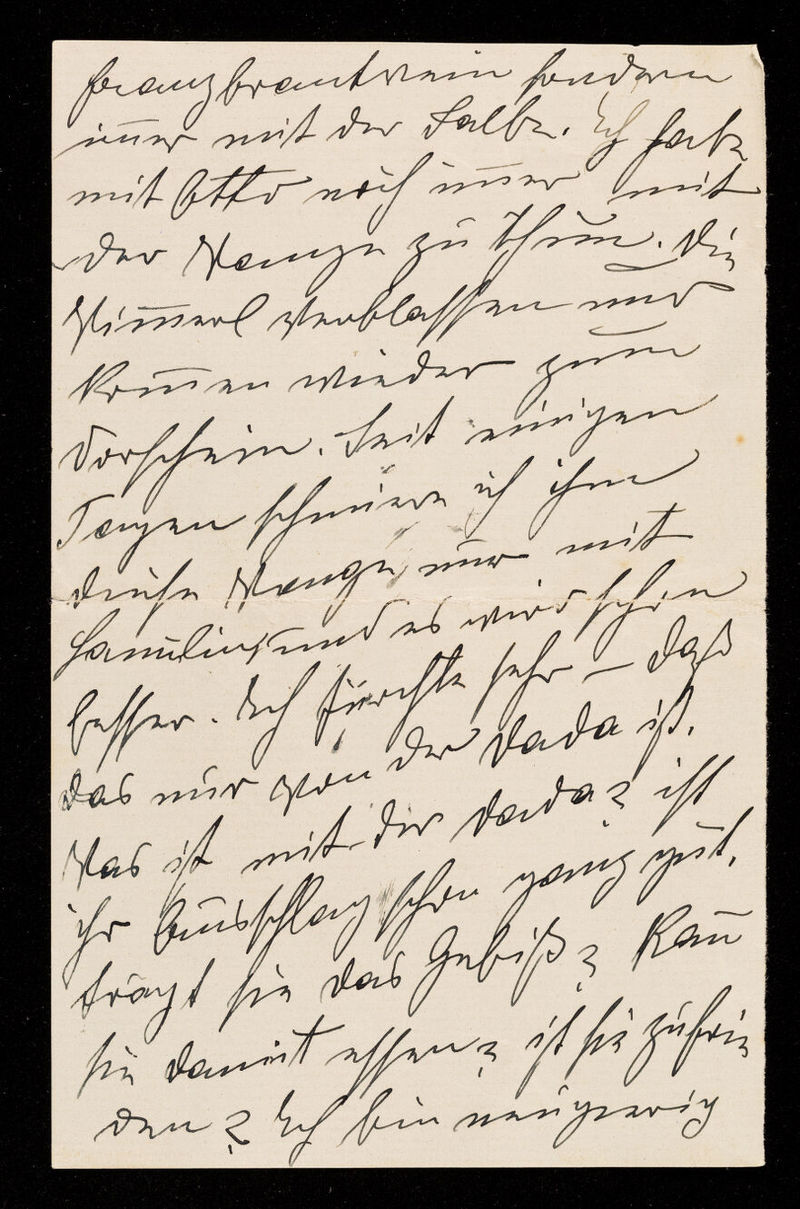 franzbrantwein sondern
im̅er mit der Salbe. Ich habe
mit Otto noch im̅er mit
der Wange zu thun. Die
Wim̅erl verblassen und
kom̅en wieder zum
Vorschein. Seit einigen
Tagen schmiere ich ihm
diese Wange nur mit
und es wird schon
besser. Ich fürchte sehr – daß
das nur von der Dada ist.
Was ist mit der Dada? ist
ihr Ausschlag schon ganz gut.
trägt sie das Gebiß? Kan̅
sie damit essen? ist sie zufrie
den? Ich bin neugierig